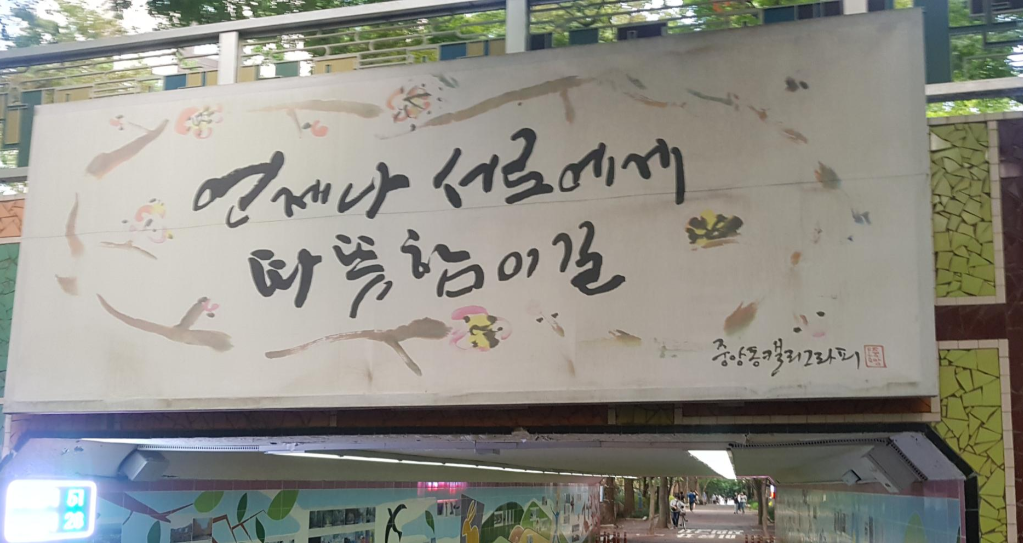 언제나 서로에게
따뜻함이길
중앙동캘리그라피
51
28